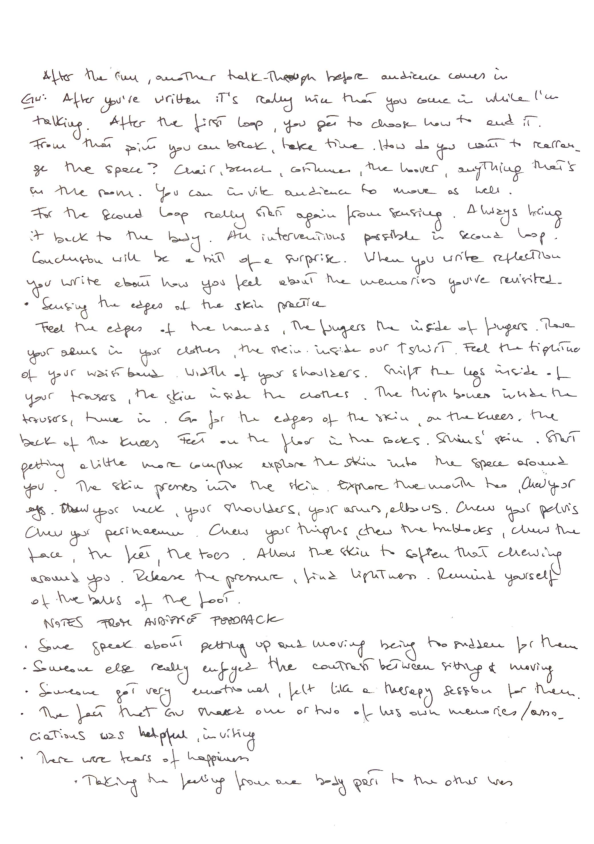 After the run, another talk-through before audience comes in
Gu: After you've written it's really nice that you come in while I'm
talking. After the first loop, you get to choose how to end it.
From that point you can break, take time. How do you want to rearran-
ge the space? Chair, bench, costumes, the hoover, anything that's
in the room. You can invite audience to move as well.
For the second loop really start again from sensing. Always bring
it back to the body. All interventions possible in second loop.
Conclusion will be a bit of a surprise. When you write reflection
you write about how you feel about the memories you've revisited.
• Sensing the edges of the skin practice
Feel the edges of the hands, the fingers the inside of fingers. Move
your arms in your clothes, the skin inside our T shirt. Feel the tightness
of your waist band. Width of your shoulders. Shift the legs inside of
your trousers, the skin inside the clothes. The thigh bones inside the
trousers, tune in. Go for the edges of the skin, on the knees. The
back of the knees Feet on the floor in the socks. Shins' skin. Start
getting a little more complex explore the skin into the space around
you. The skin presses into the skin. Explore the mouth too, Chew your
your neck, your shoulders, your arms, elbows. Chew your pelvis
Chew your perineum. Chew your thighs, chew the buttocks, chew the
face, the feet, the toes. Allow the skin to soften that chewing
around you. Release the pressure, find lightness. Remind yourself
of the balls of the foot.
NOTES FROM AUDIENCE FEEDBACK
• Some speak about getting up and moving being too sudden for them
• Someone else really enjoyed the contrast between sitting & moving
• Someone got very emotional, felt like a therapy session for them.
• The fact that Gu shared one or two of his own memories/asso-
ciations was helpful, inviting
• There were tears of happiness
• Taking the feeling from one body part to the other was